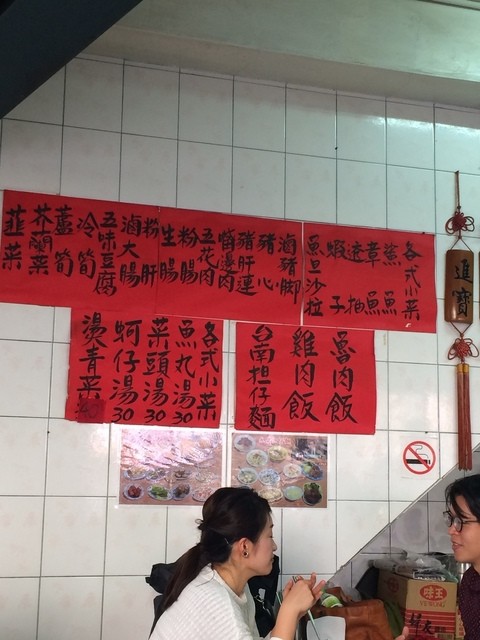 各式小菜
鯊魚
章魚
透抽
蝦子
魚旦沙拉
滷豬脚
豬心
豬肝連
嘴邊肉
五花肉
粉腸
生腸
粉肝
滷大腸
五味豆腐
冷筍
蘆筍
芥蘭菜
韮菜
魯肉飯
雞肉飯
台南担仔麵
各式小菜
魚丸湯30
菜頭湯30
蚵仔湯30
燙青菜
進寶
味王